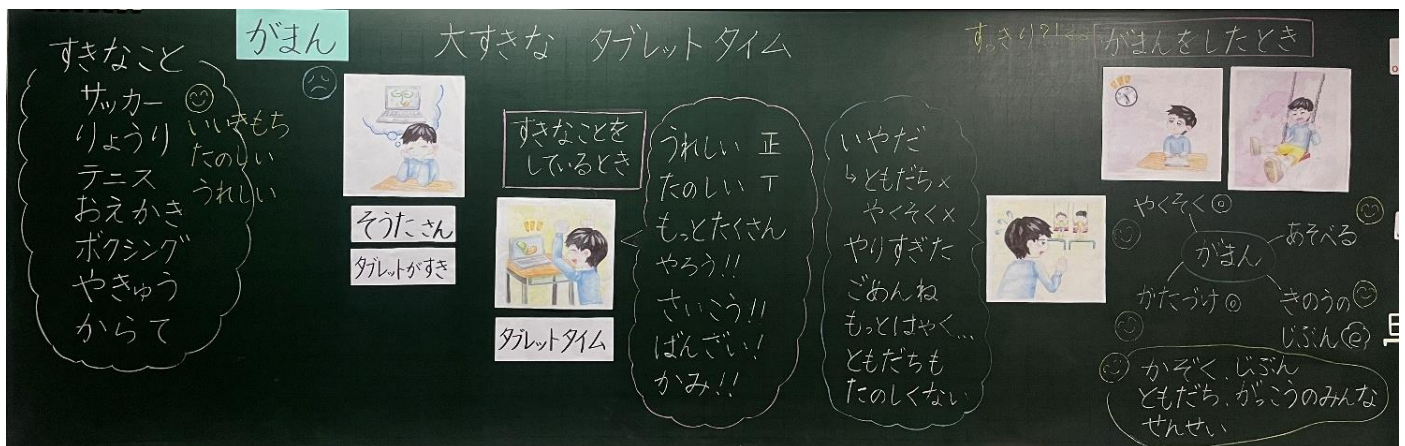 すきなこと
サッカー
りょうり
テニス
おえかき
ボクシング
やきゅう
からて
いいきもち
たのしい
うれしい
がまん
大すきな タブレットタイム
そうたさん
タブレットがすき
すきなことを
しているとき
タブレットタイム
うれしい 正
たのしい T
もっとたくさん
やろう!!
さいこう!!
ばんざい!
かみ!!
いやだ
↳ともだち×
やくそく×
やりすぎた
ごめんね
もっとはやく…
ともだちも
たのしくない
すっきり?!
がまんをしたとき
やくそく◎
がまん
あそべる
かたづけ◎
きのうの
じぶん
かぞく、じぶん
ともだち、がっこうのみんな
せんせい